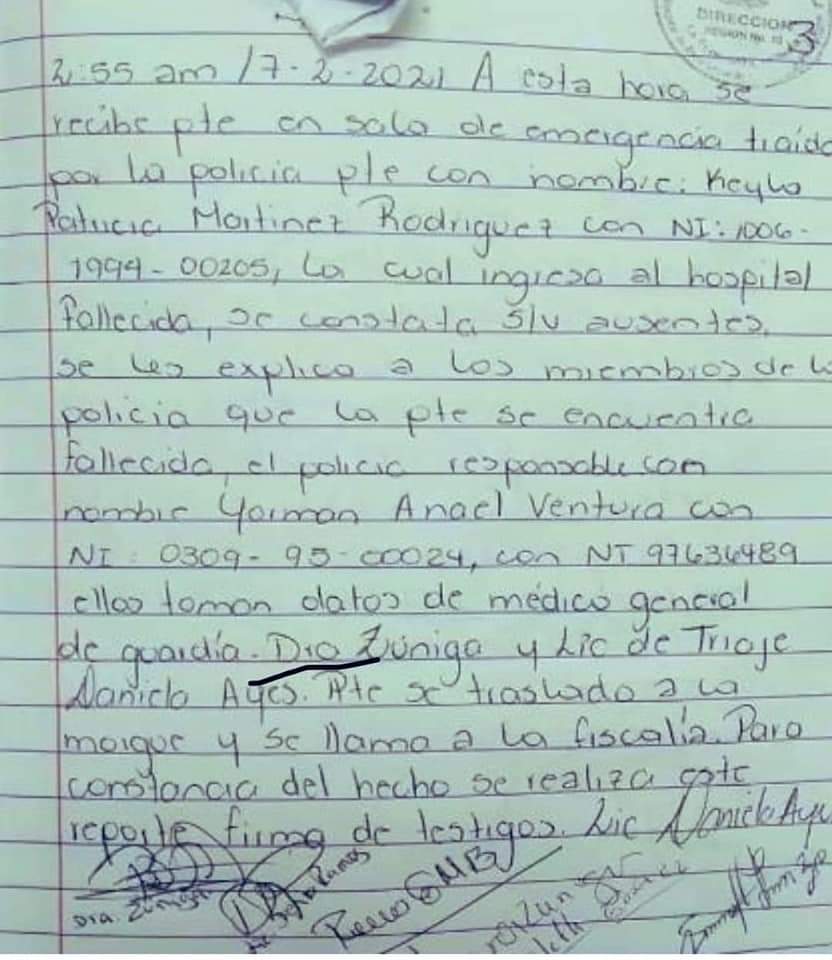 DIRECCION
REGION No. 10
3
2:55 am 17-2-2021 A esta hora se
recibe pte en sala de emergencia traida
por la policia pte con nombre: Keyla
Patricia Martinez Rodriguez con NI: 1006-
1994-00205, la cual ingresa al hospital
fallecida, se constata S/V ausentes.
se les explica a los miembros de la
policia que la pte se encuentra
fallecida, el policia responsable con
nombre Yarman Anael Ventura con
NI: 0309-95-00024, con NT 97636489
ellos toman datos de médico general
de guardía. Dra Zúniga y Lic de Triaje
Daniela Ayes. Pte se traslada a la
morgue y se llama a la fiscalía. Para
constancia del hecho se realiza este
reporte, firma de testigos. Lic Daniela Aye
Dra. Zúniga
Ramos